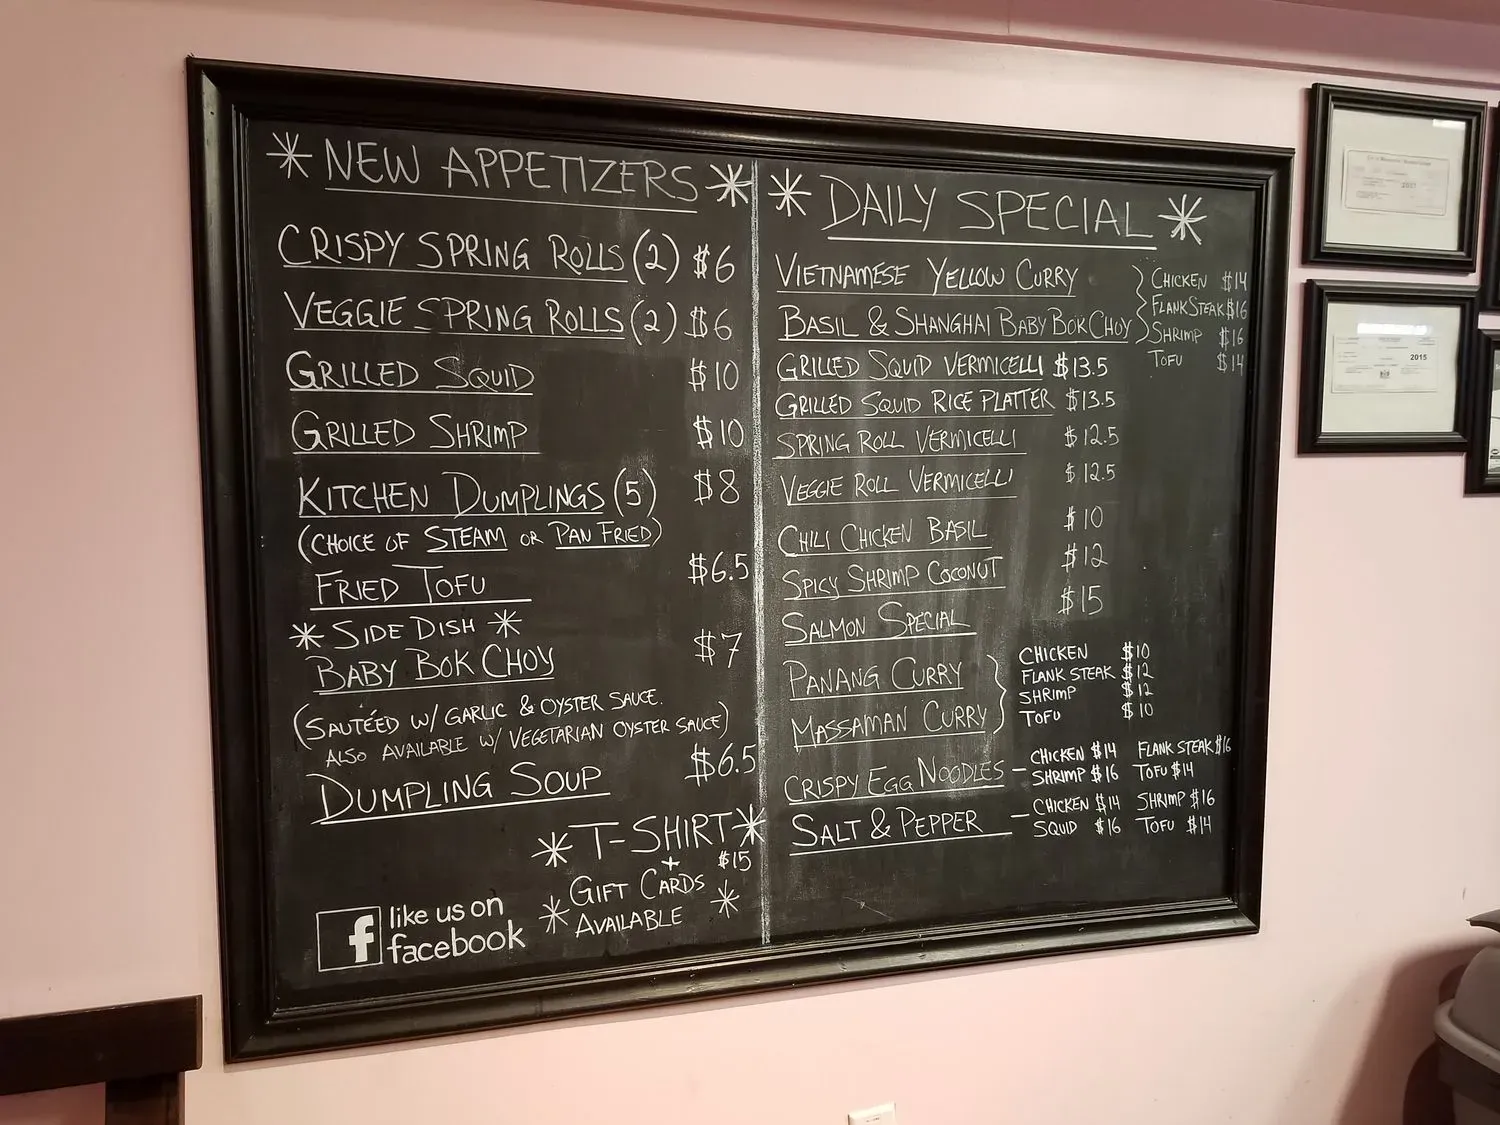 * NEW APPETIZERS *
CRISPY SPRING ROLLS (2) $6
VEGGIE SPRING ROLLS (2) $6
GRILLED SQUID $10
GRILLED SHRIMP $10
KITCHEN DUMPLINGS (5) $8
(CHOICE OF STEAM OR PAN FRIED)
FRIED TOFU $6.5
* SIDE DISH *
BABY BOK CHOY $7
(SAUTÉED W/ GARLIC & OYSTER SAUCE.
ALSO AVAILABLE W/ VEGETARIAN OYSTER SAUCE)
DUMPLING SOUP $6.5
* T-SHIRT *
+ $15
GIFT CARDS
* AVAILABLE *
f like us on
facebook
* DAILY SPECIAL *
VIETNAMESE YELLOW CURRY
BASIL & SHANGHAI BABY BOK CHOY
CHICKEN $14
FLANK STEAK $16
SHRIMP $16
TOFU $14
GRILLED SQUID VERMICELLI $13.5
GRILLED SQUID RICE PLATTER $13.5
SPRING ROLL VERMICELLI $12.5
VEGGIE ROLL VERMICELLI $12.5
CHILI CHICKEN BASIL $10
SPICY SHRIMP COCONUT $12
SALMON SPECIAL $15
PANANG CURRY
MASSAMAN CURRY
CHICKEN $10
FLANK STEAK $12
SHRIMP $12
TOFU $10
CRISPY EGG NOODLES - CHICKEN $14 FLANK STEAK $16
SHRIMP $16 TOFU $14
SALT & PEPPER - CHICKEN $14 SHRIMP $16
SQUID $16 TOFU $14
2015